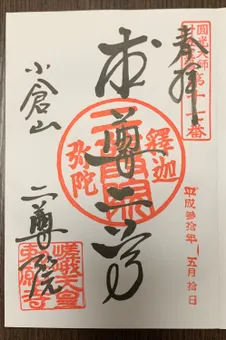 奉拝
圓光大師第十七番
本尊二尊
釋迦
弥陀
平成参拾年五月拾日
小倉山
二尊院
嵯峨天皇
勅願寺